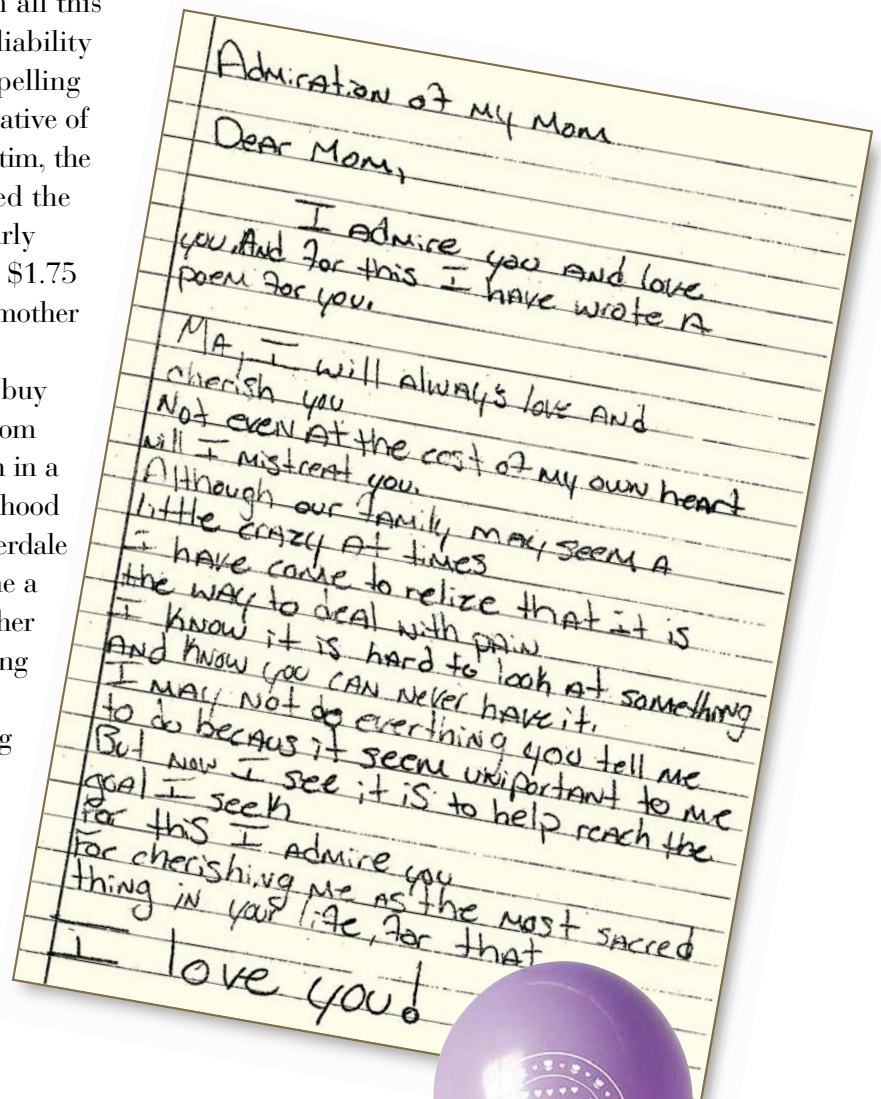 n all this
liability
pelling
ative of
tim, the
ed the
rly
$1.75
mother
buy
om
n in a
hood
erdale
ne a
her
ng
g
Admiration of My Mom
Dear Mom,
I admire you And love
you. And for this I have wrote A
poem for you.
MA, I will always love And
cherish you
Not even At the cost of my own heart
will I mistreat you.
Although our family may seem A
little crazy At times
I have come to relize that it is
the way to deal with pain
I know it is hard to look At something
And know you can never have it.
I may not do everthing you tell me
to do becaus it seem uniportant to me
But now I see it is to help reach the
goal I seek
for this I admire you
For cherishing me as the most sacred
thing in your life, for that
I love you!